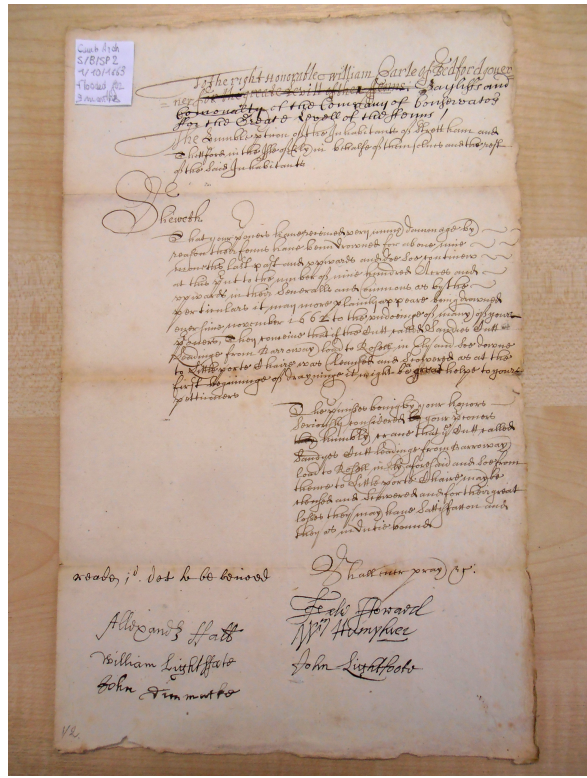 Camb Arch
S/B/SP2
1/10/1663
To the right Honorable William Earle of Bedford
ner for the great Levill of the ffenns, Bayliffs and
Comonalty of the Company of Conservators
for the Greate Levell of the ffenns
The humble petition of the Inhabitants of Strettham and
Thettford in the Isle of Ely in behalfe of themselves and the rest
of the said Inhabitants
Sheweth
That your have received very dammage by
reason their fenns have been drowned for above nine
months last past and upwards and doe soe continew
at this to the number of nine hundred Acres and
upwards in their severalls and comons as by the
perticulars it may more plainly appeare being drowned
ever sine november 1662 to the of many of your
peteers, They conceive that if the Cutt called Sandies Cutt
Leadinge from Harroway load to in Ely and soe downe
to Little porte Chaire was Cleansed and Scowered as at the
first beginninge of drayninge it might be great helpe to your
petticiners
The premisses being by your honors
seriously considered your petioners
humbly crave that ye Cutt called
Sandyes Cutt leadinge from Harroway
load to in Ely aforesaid and soe from
thence to Little porte Chaire maybe
clensed and Scowered and for there great
loses they may have Sattisfaction and
they as in dutie bound
Shall ever pray &c.
reade, to be
Allexand Hall
ffeds Howard
William Lightffate
John Lightfoote
John
V2.